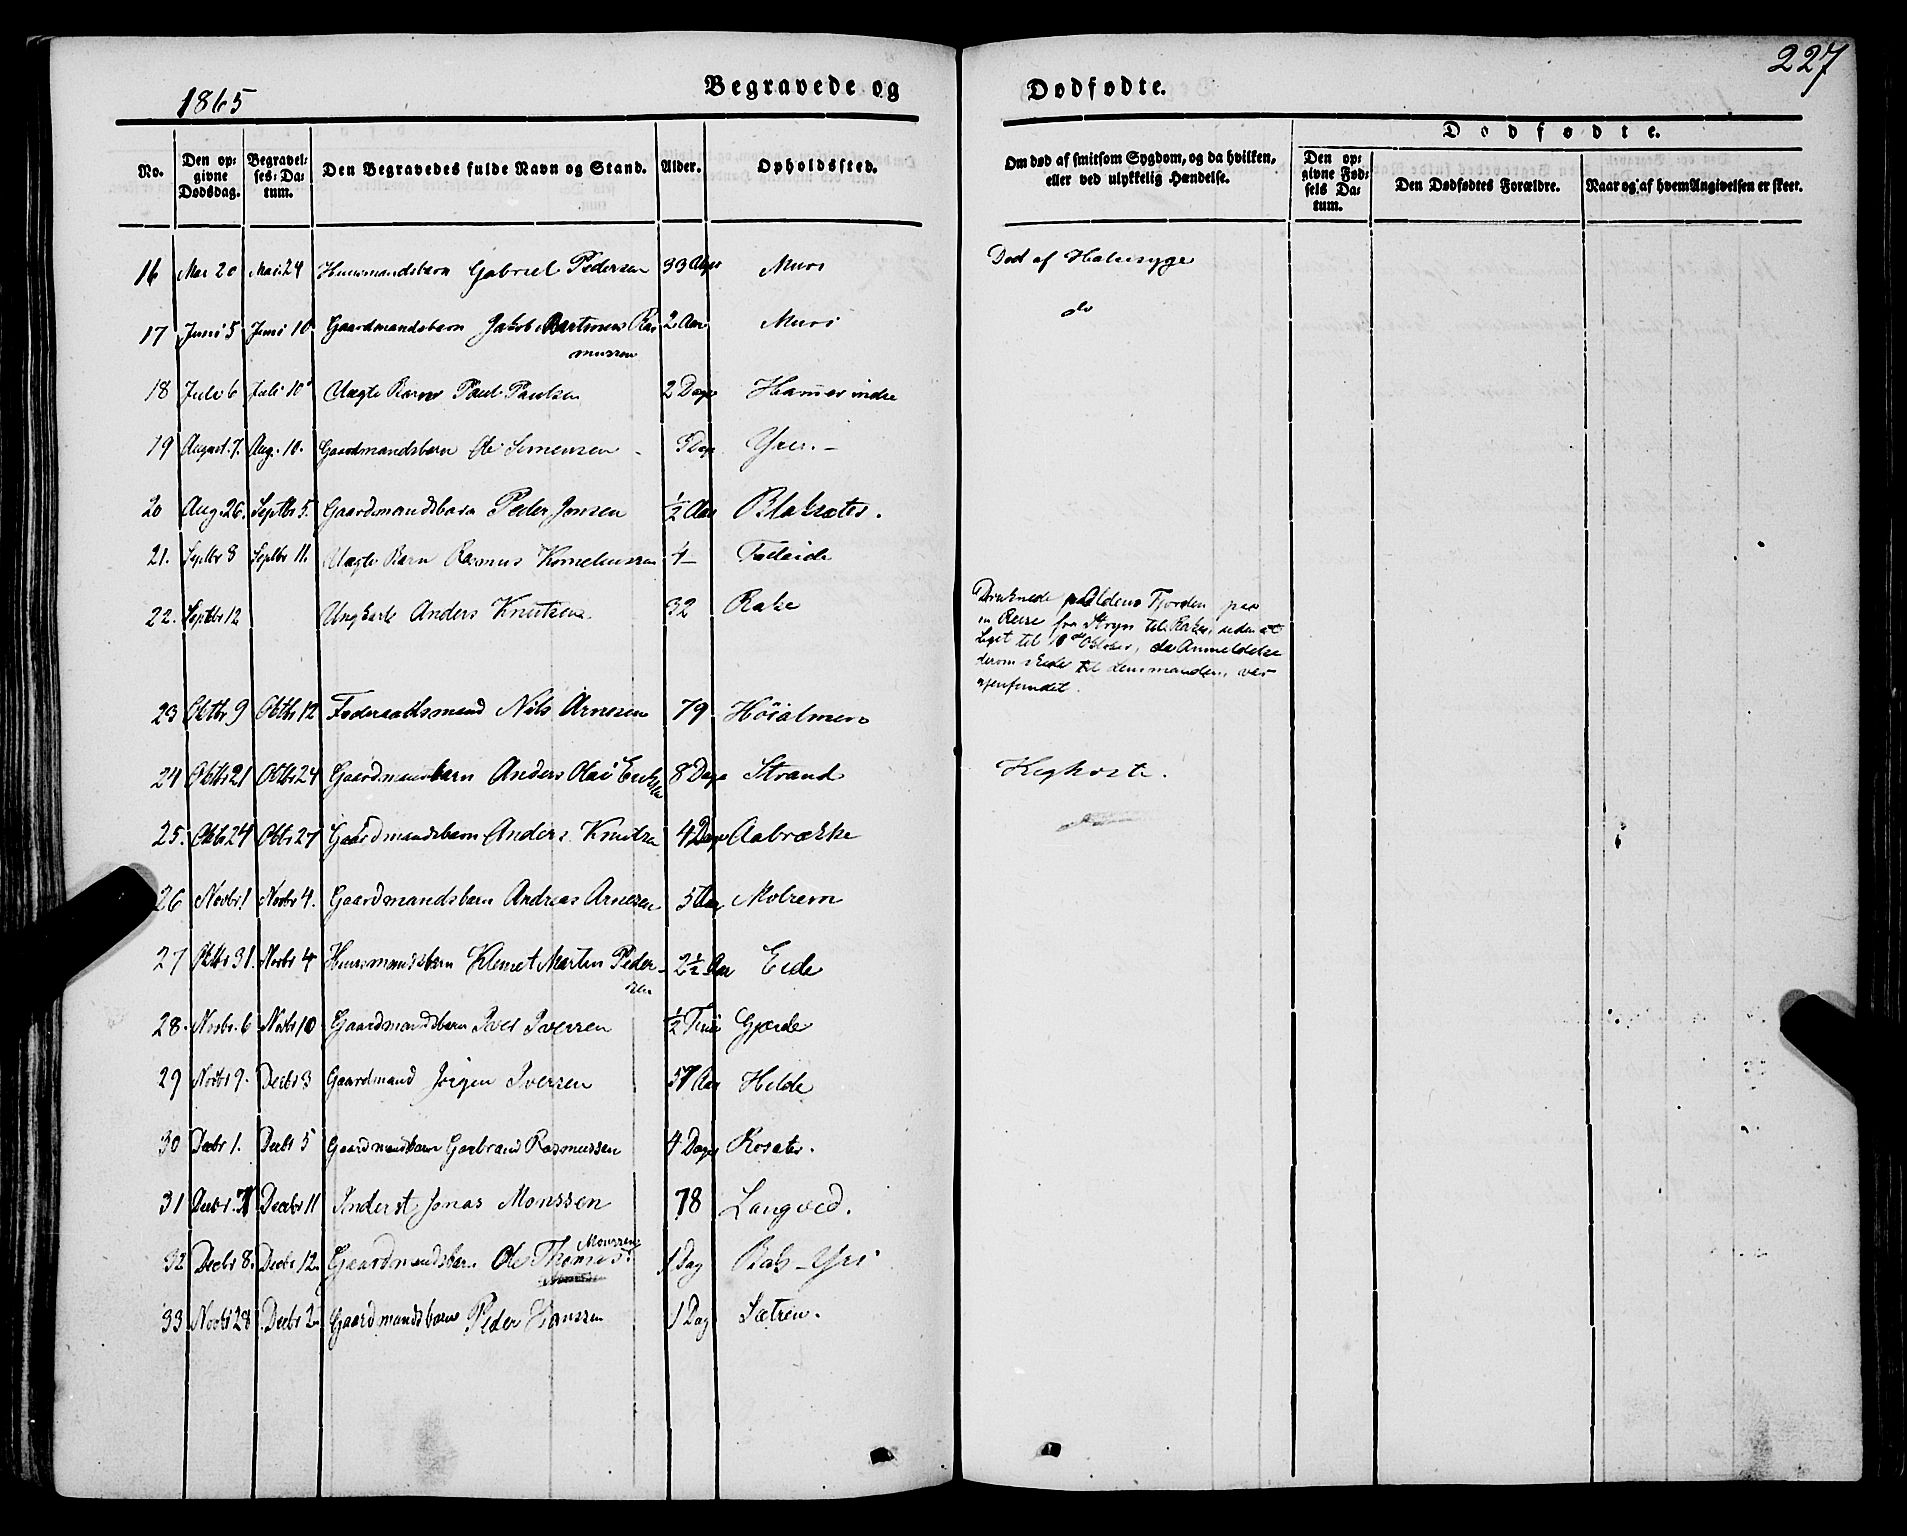 227
1865
Begravede og
Dødfødte.
No.
Den op-
givne
Dødsdag.
Begravel-
ses-Da-
tum.
Den Begravedes fulde Navn og Stand.
Alder.
Opholdssted.
Om død af smitsom Sygdom, og da hvilken,
eller ved ulykkelig Hændelse.
Dødfødte.
Den op-
givne Fød-
sels Da-
tum.
Den Dødfødtes Forældre.
Naar og af hvem Angivelsen er skeet.
16 Mai 20 Mai 24 Huusmandsbarn Gabriel Pedersen 33 Muri Død af Halssyge
17 Juni 5 Juni 10 Gaardmandsbarn Jakob Ras 2 Aar Muri do
mussen
18 Juli 6 Juli 10 Uægte Barn Paul Paulsen 2 Dage Hammer indre
19 August 7. Aug. 10. Gaardmandsbarn Ole Simensen 5 Dage Yri
20 Aug. 26. Septbr 5. Gaardmandsbarn Peder Jonsen ½ Aar Blaksæter.
21. Septbr 8 Septbr 11. Uægte Barn Rasmus Korneliussen Foleide
22. Septbr 12 Ungkarl Anders Knutsen 32 Rake
Druknede paa Oldens Fjorden paa
en Reise fra Stryn til
Liget til Oktober, da Anmeldelse
derom skede til Lensmanden,
gjenfundet.
23 Oktbr 9 Oktbr 12 Føderaadsmand Nils Arnesen 79 Höialmen
24 Oktbr 21 Oktbr 24 Gaardmandsbarn Anders Olai 8 Dage Strand Kighoste.
25. Oktbr 24 Oktbr 27 Gaardmandsbarn Anders Knutsen 4 Dage Aabrække
26 Novbr 1 Novbr 4. Gaardmandsbarn Andreas Arnesen 5 Aar Molrem
27 Oktbr 31. Novbr 4 Huusmandsbarn Klemet Martin Peder- 2½ Aar Eide
sen
28. Novbr. 6 Novbr 10 Gaardmandsbarn Iver Iversen ½ Time Gjerde
29 Novbr 9. Decbr 3 Gaardmand Jörgen Iversen 57 Aar Hilde
30 Decbr 1. Decbr 5 Gaardmandsbarn Rasmussen 4 Dage
31 Decbr. 7 Decbr 11 Inderst Jonas Monssen 78 Langved.
Monssen
32 Decbr 8. Decbr 12. Gaardmandsbarn Ole Thomas 1 Dag Yri
33 Novbr 28 Decbr 2 Gaardmandsbarn Peder Hanssen 1 Dag Sætren.